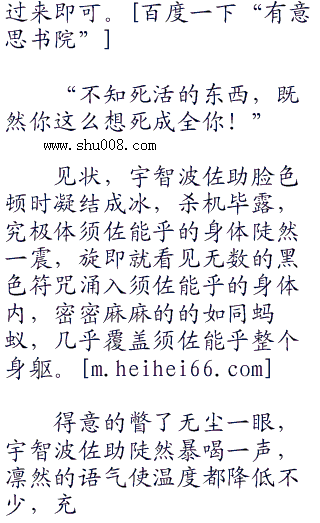 过来即可。[百度一下“有意
思书院”]
“不知死活的东西，既
然你这么想死成全你！”
www.shu008.com
见状，宇智波佐助脸色
顿时凝结成冰，杀机毕露，
究极体须佐能乎的身体陡然
一震，旋即就看见无数的黑
色符咒涌入须佐能乎的身体
内，密密麻麻的的如同蚂
蚁，几乎覆盖须佐能乎整个
身躯。[m.heihei66.com]
得意的瞥了无尘一眼，
宇智波佐助陡然暴喝一声，
凛然的语气使温度都降低不
少，充